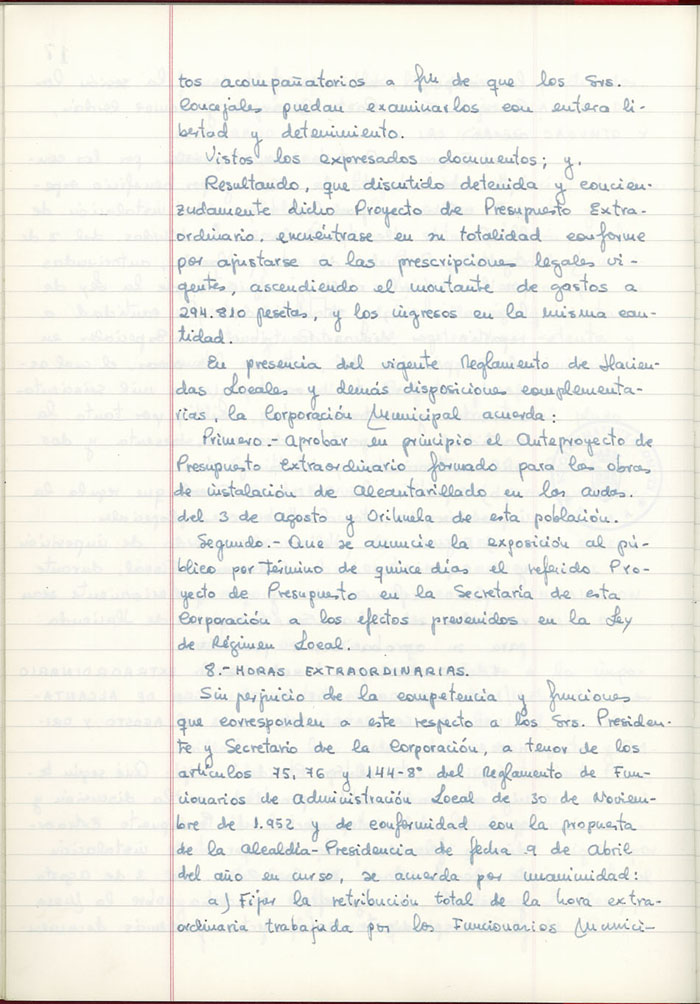 tos acompañatorios a fin de que los Srs.
Concejales puedan examinarlos con entera li-
bertad y detenimiento.
Vistos los expresados documentos; y,
Resultando, que discutido detenida y concien-
zudamente dicho Proyecto de Presupuesto Extra-
ordinario, encuéntrase en su totalidad conforme
por ajustarse a las prescripciones legales vi-
gentes, ascendiendo el montante de gastos a
294.810 pesetas, y los ingresos en la misma can-
tidad.
En presencia del vigente Reglamento de Hacien-
das Locales y demás disposiciones complementa-
rias, la Corporación Municipal acuerda:
Primero.- Aprobar en principio el Anteproyecto de
Presupuesto Extraordinario formado para las obras
de instalación de Alcantarillado en las avdas.
del 3 de agosto y Orihuela de esta población.
Segundo.- Que se anuncie la exposición al pú-
blico por término de quince días el referido Pro-
yecto de Presupuesto en la Secretaría de esta
Corporación a los efectos prevenidos en la Ley
de Régimen Local.
8.- HORAS EXTRAORDINARIAS.
Sin perjuicio de la competencia y funciones
que corresponden a este respecto a los Srs. Presiden-
te y Secretario de la Corporación, a tenor de los
artículos 75, 76 y 144-8º del Reglamento de Fun-
cionarios de Administración Local de 30 de Noviem-
bre de 1.952 y de conformidad con la propuesta
de la Alcaldía-Presidencia de fecha 9 de Abril
del año en curso, se acuerda por unanimidad:
a) Fijar la retribución total de la hora extra-
ordinaria trabajada por los Funcionarios Munici-